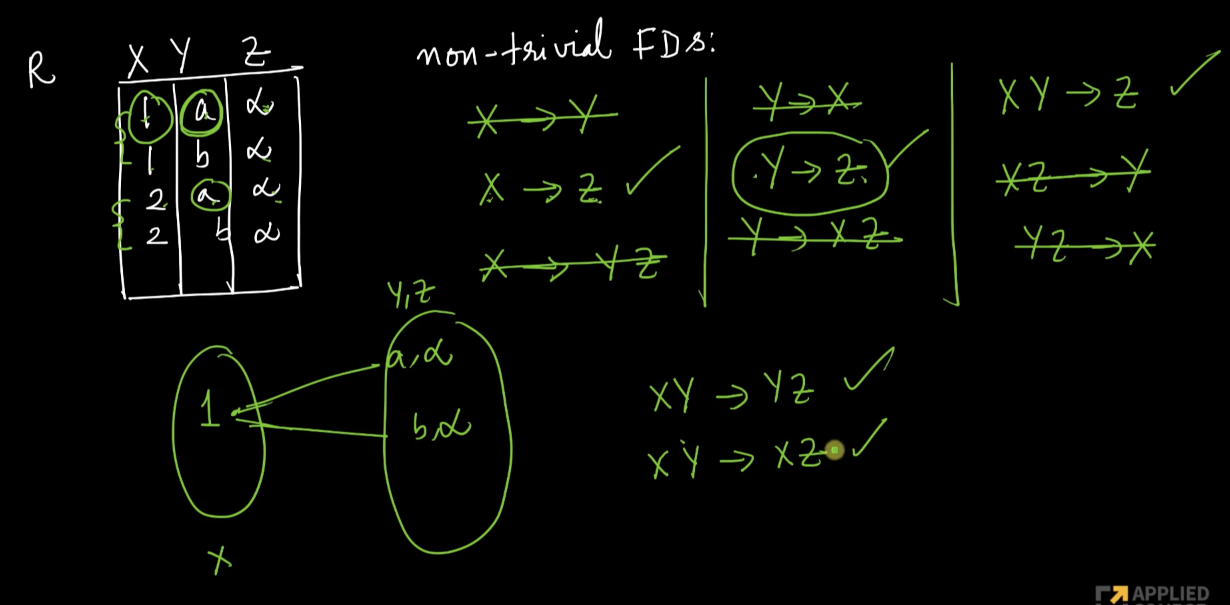 R
X Y Z
1 a α
1 b α
2 a α
2 b α
non-trivial FDs:
X → Y
X → Z ✓
X → YZ
Y → X
Y → Z ✓
Y → XZ
XY → Z ✓
XZ → Y
YZ → X
Y,Z
1
a,α
b,α
X
XY → YZ ✓
XY → XZ ✓
APPLIED